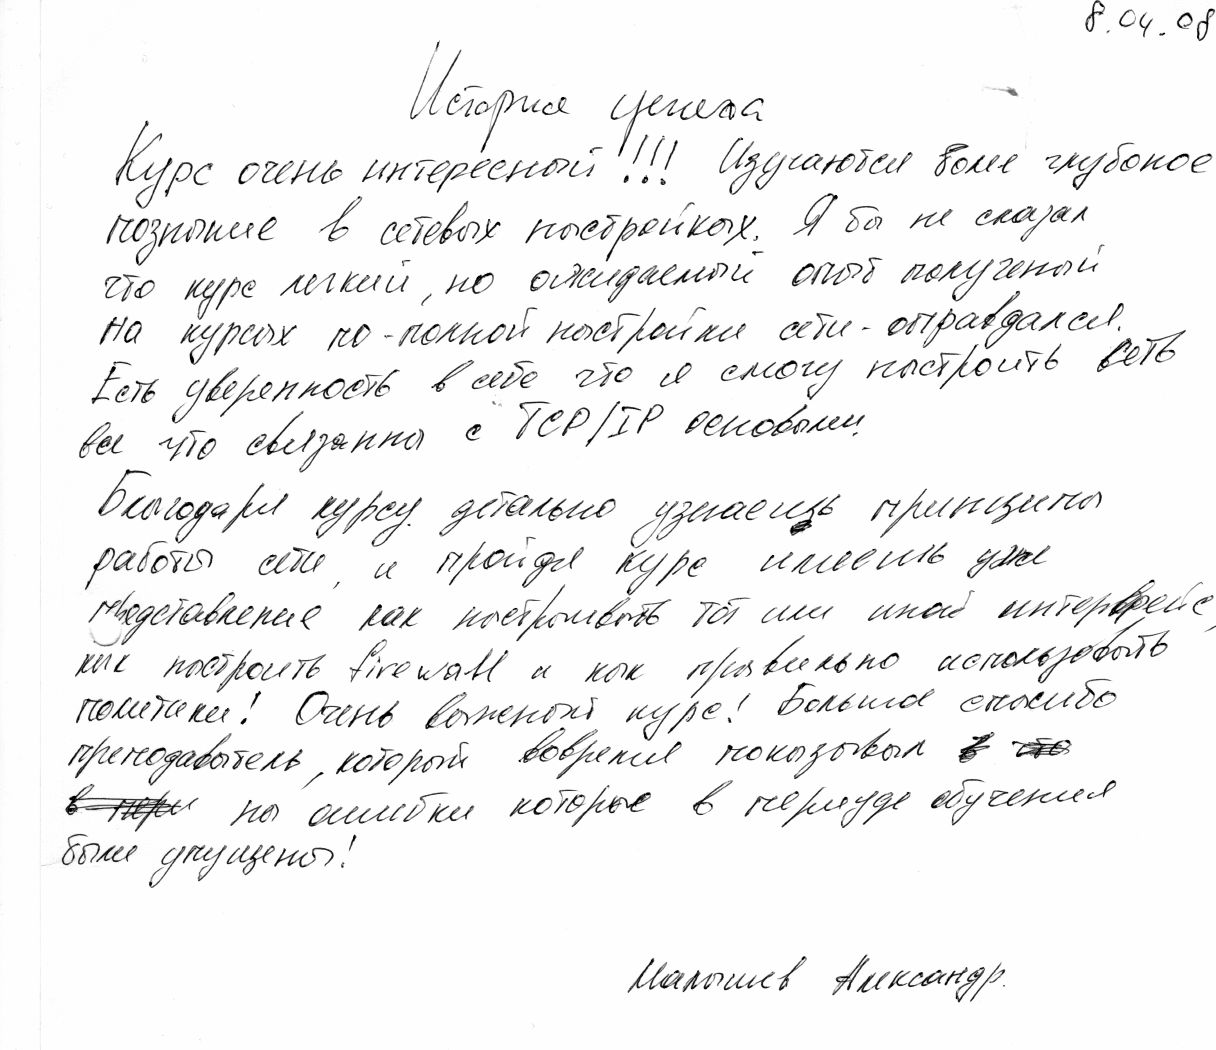 8.04.08
История успеха
Курс очень интересный!!! Изучаются более глубокое
познание в сетевых настройках. Я бы не сказал
что курс легкий, но ожидаемый опыт полученый
на курсах по-полной настройки сети - оправдался.
Есть уверенность в себе что я смогу настроить сеть
все что связанны с TCP/IP основами.
Благодаря курсу детально узнаешь принципы
работы сети, и пройдя курс имеешь уже
представление как настраивать тот или иной интерфейс,
как настроить firewall и как правильно использовать
политики! Очень важный курс! Большое спасибо
преподаватель, который вовремя показывал
на ошибки которые в периуде обучения
были упущены!
Малышев Александр.